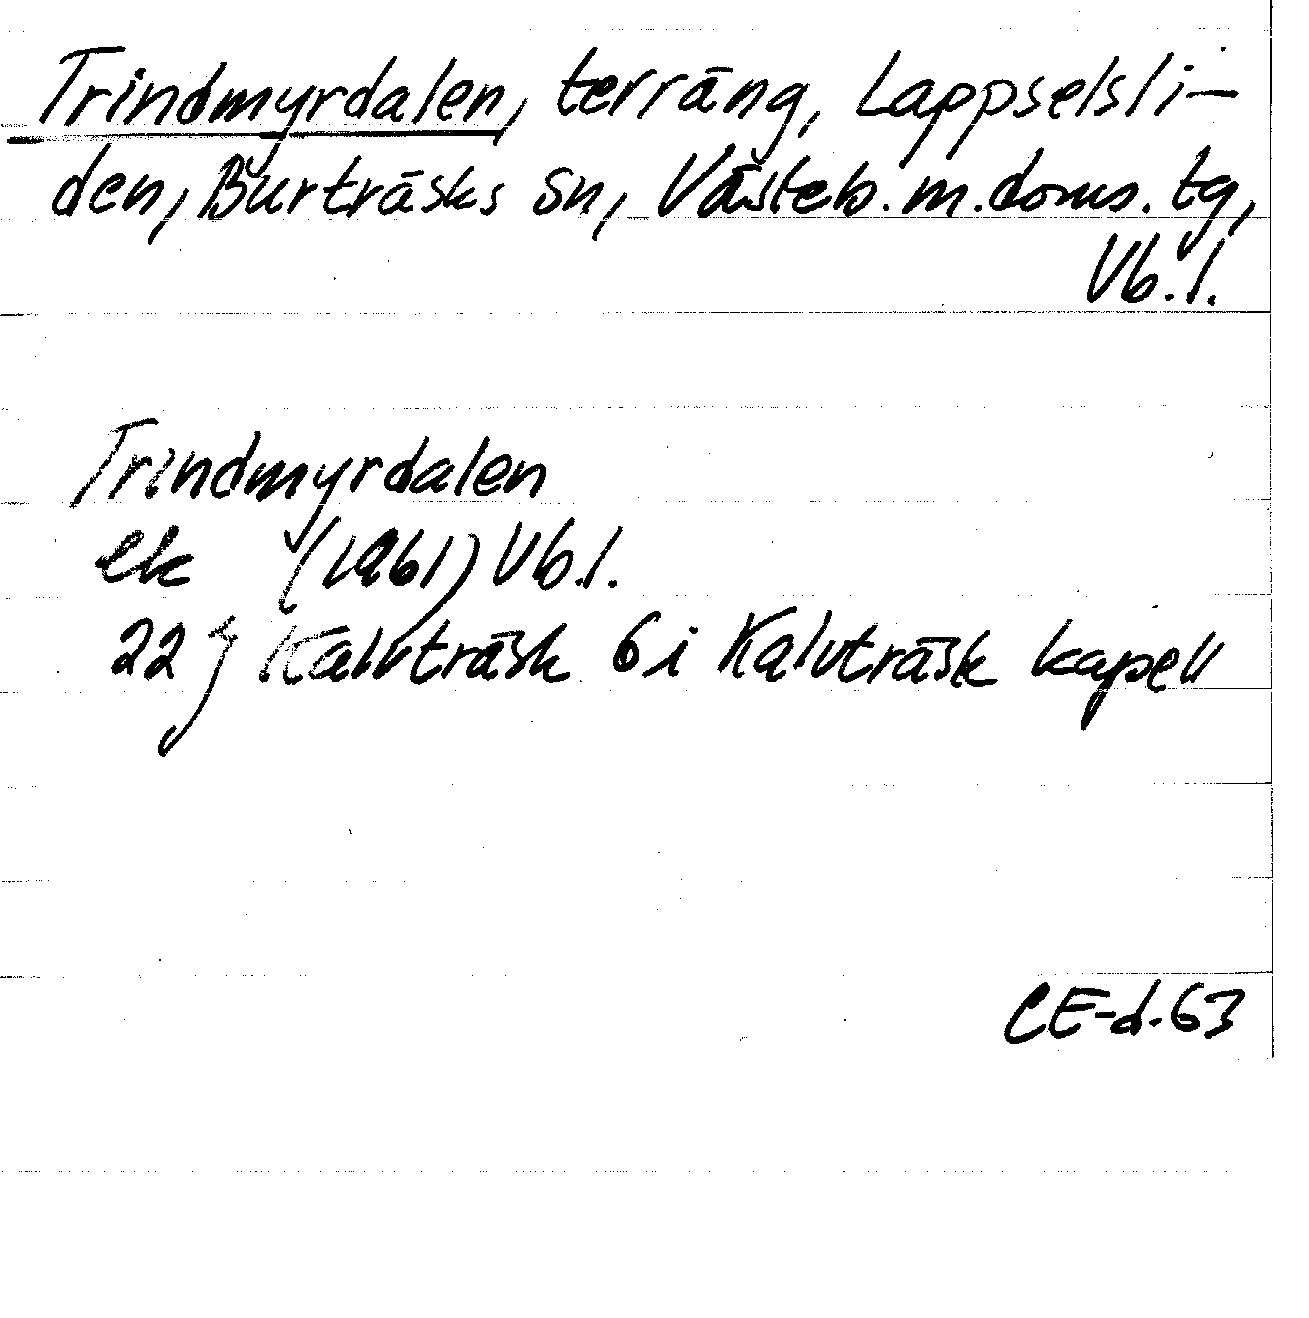 Trindmyrdalen, terräng, Lappselsli-
den, Burträsks sn, Västerb. m. doms. tg,
Vb. l.
Trindmyrdalen
ek (1961) Vb. l.
22 J Kalvträsk 6 i Kalvträsk kapell
CE-d. 63